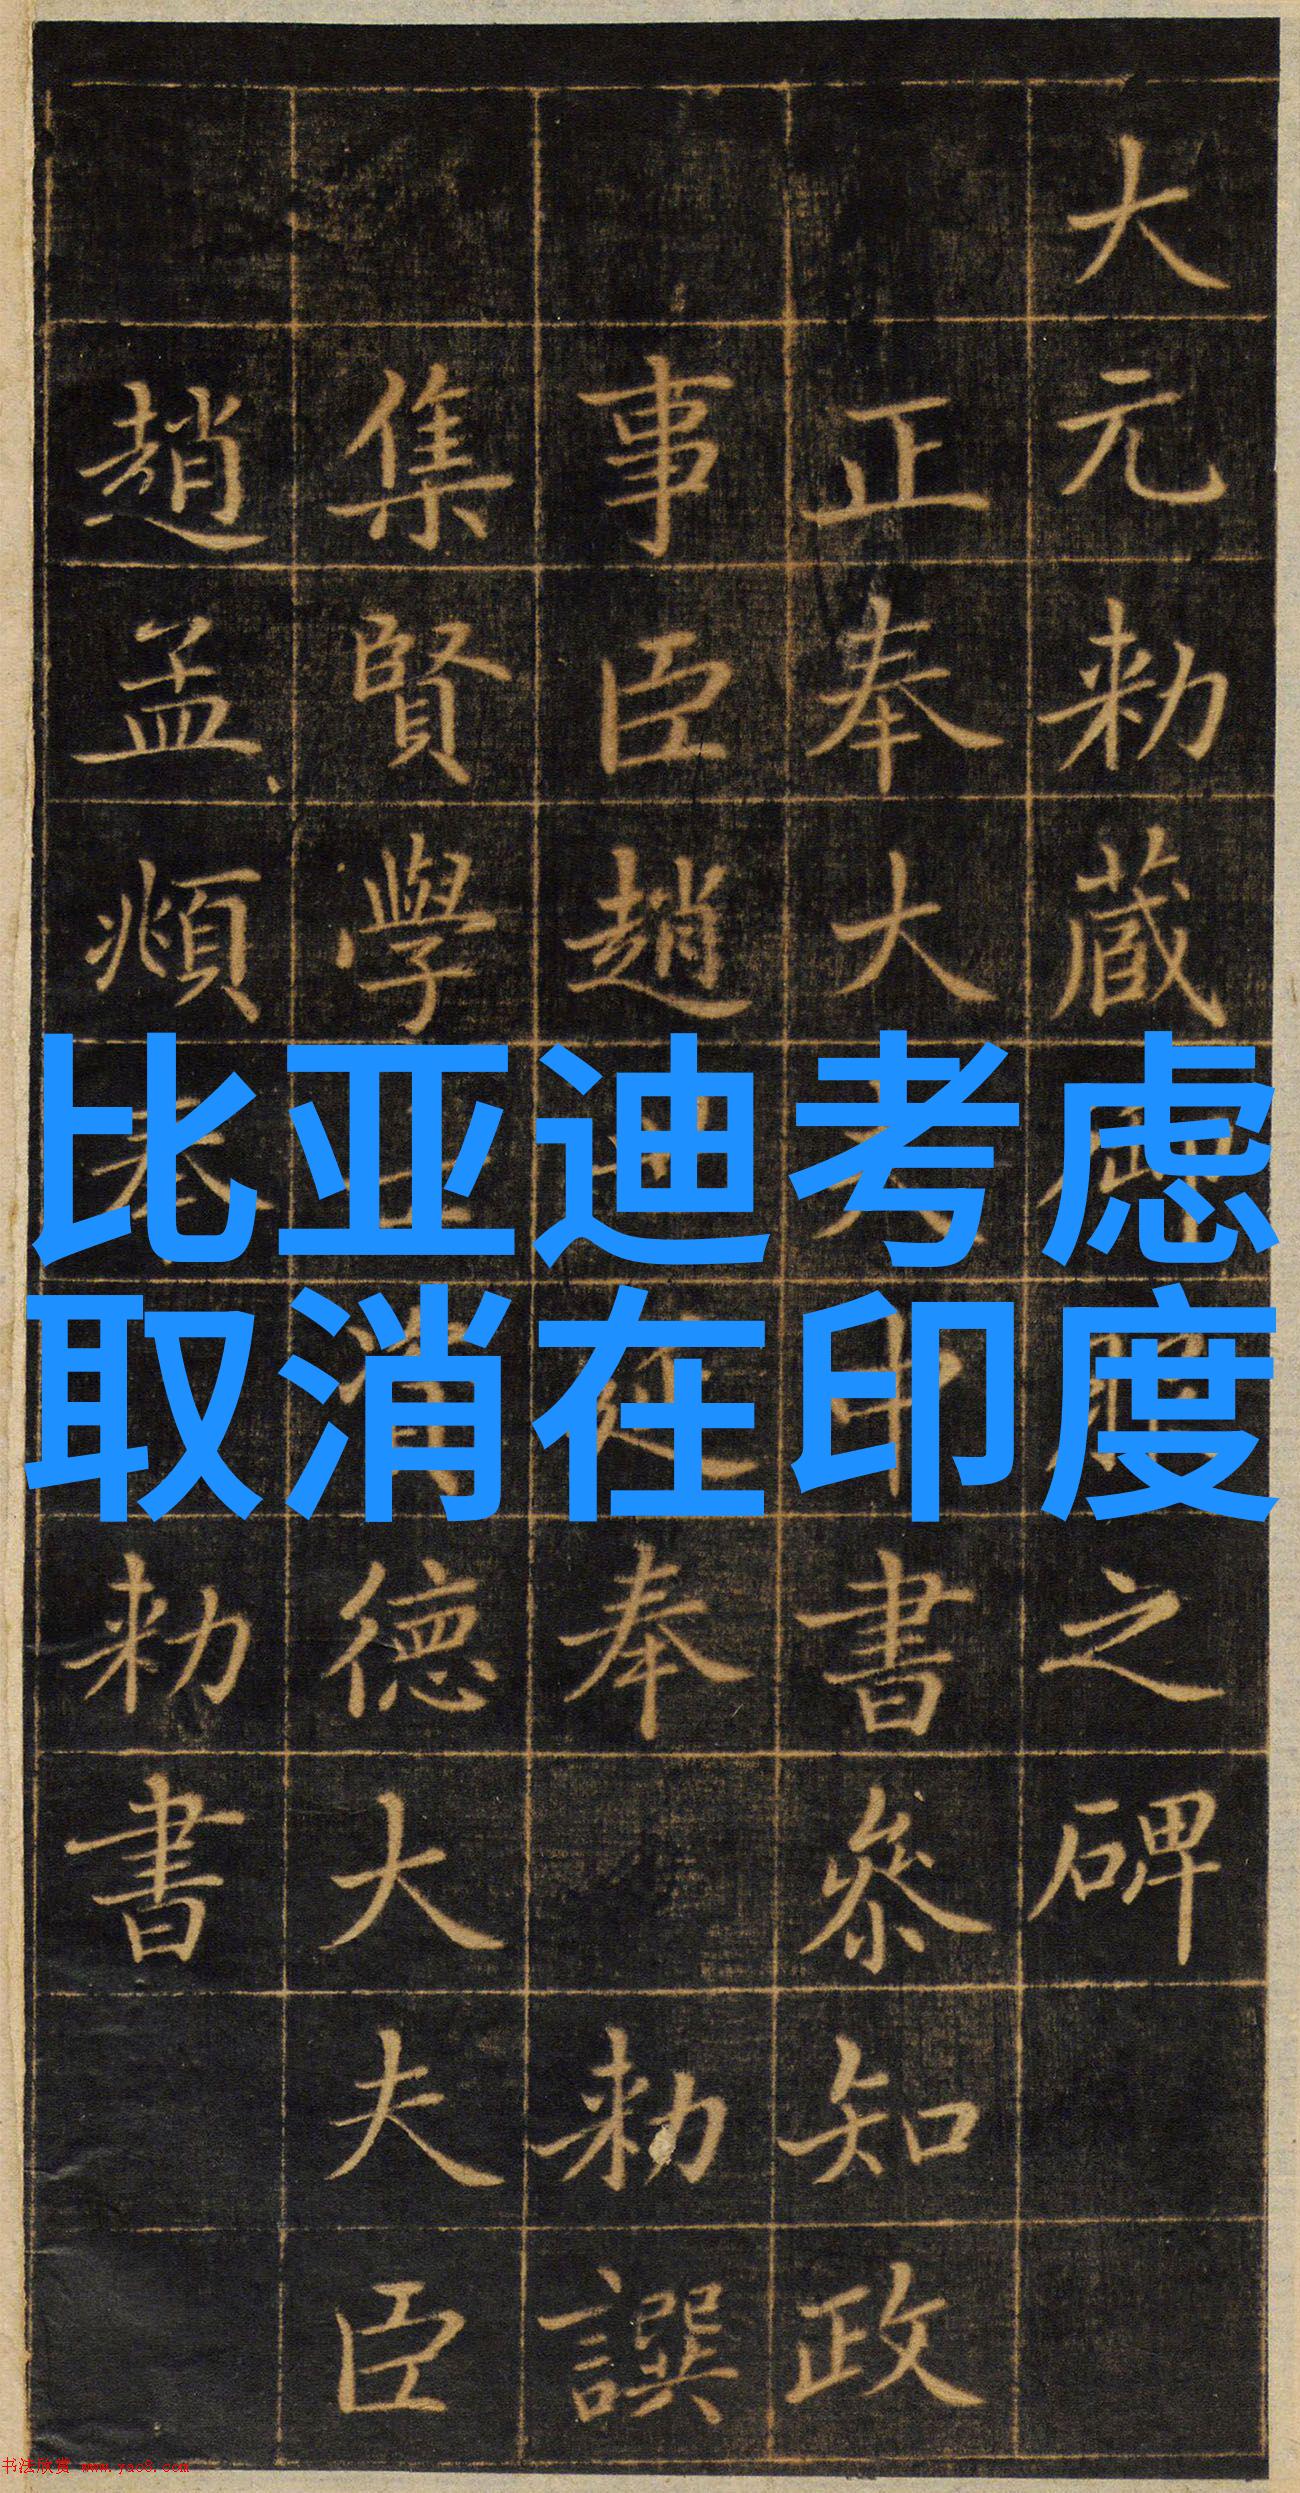 大元勅藏御服之碑
正奉大夫中書叅知政
事臣趙世延奉勅譔
集賢學士資德大夫臣
趙孟頫奉勅書
比亚迪考虑
取消在印度
书法欣赏 www.yac8.com